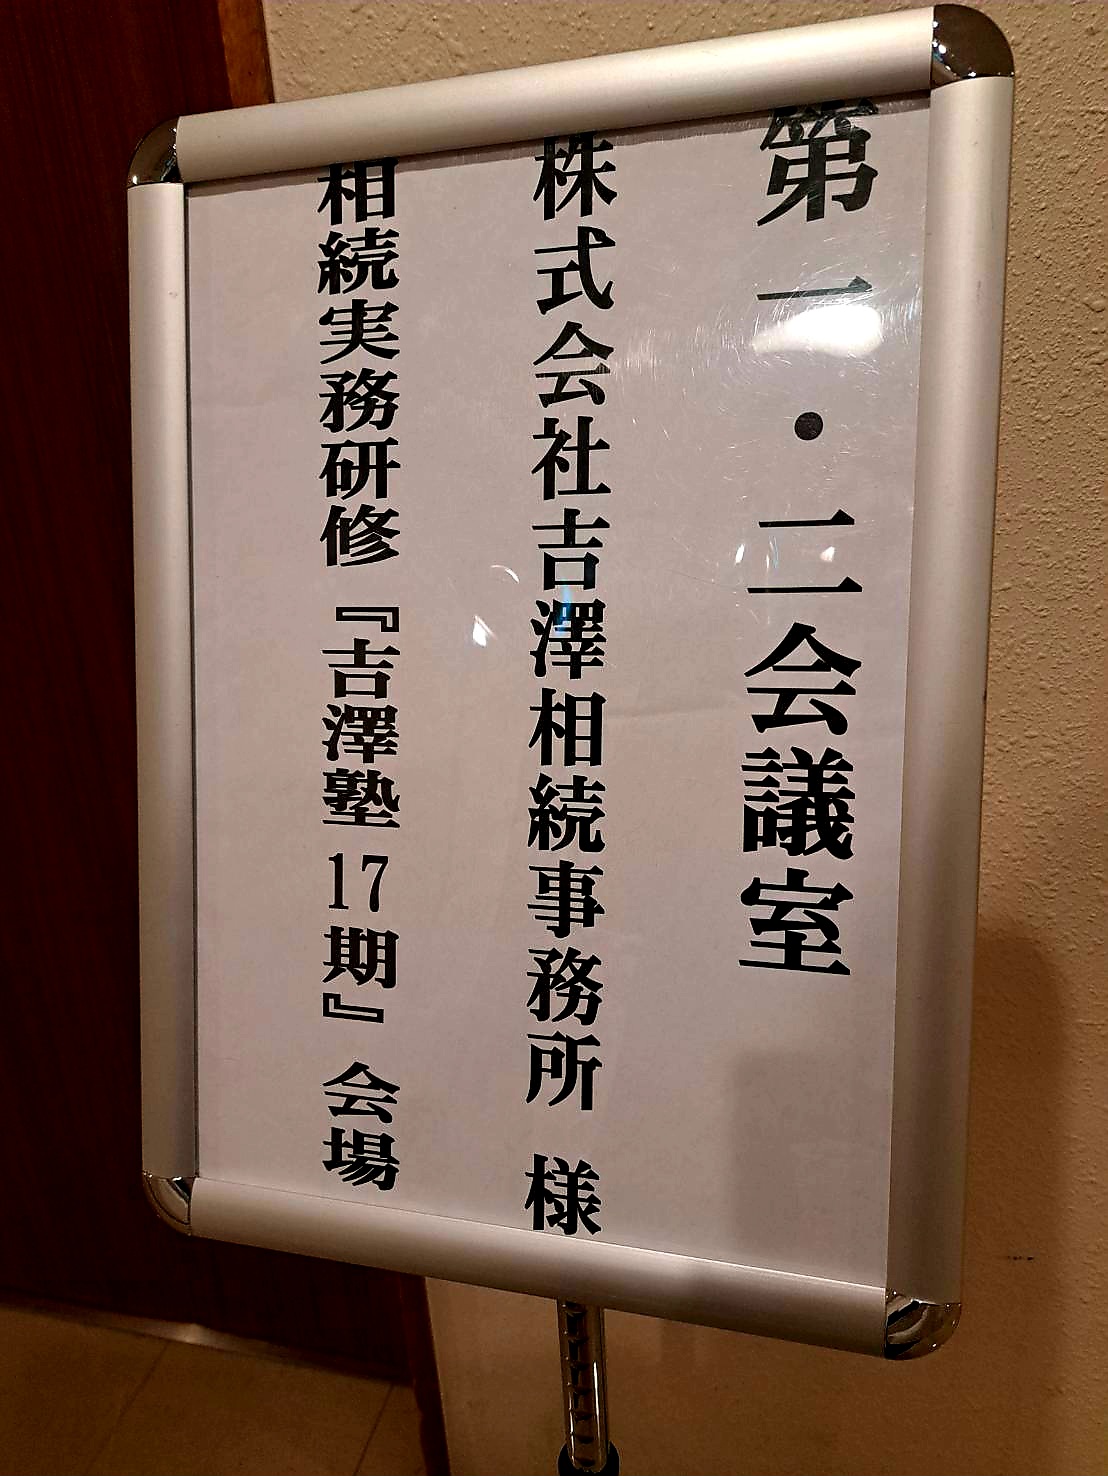 第一・二会議室
株式会社吉澤相続事務所 様
相続実務研修『吉澤塾17期』会場